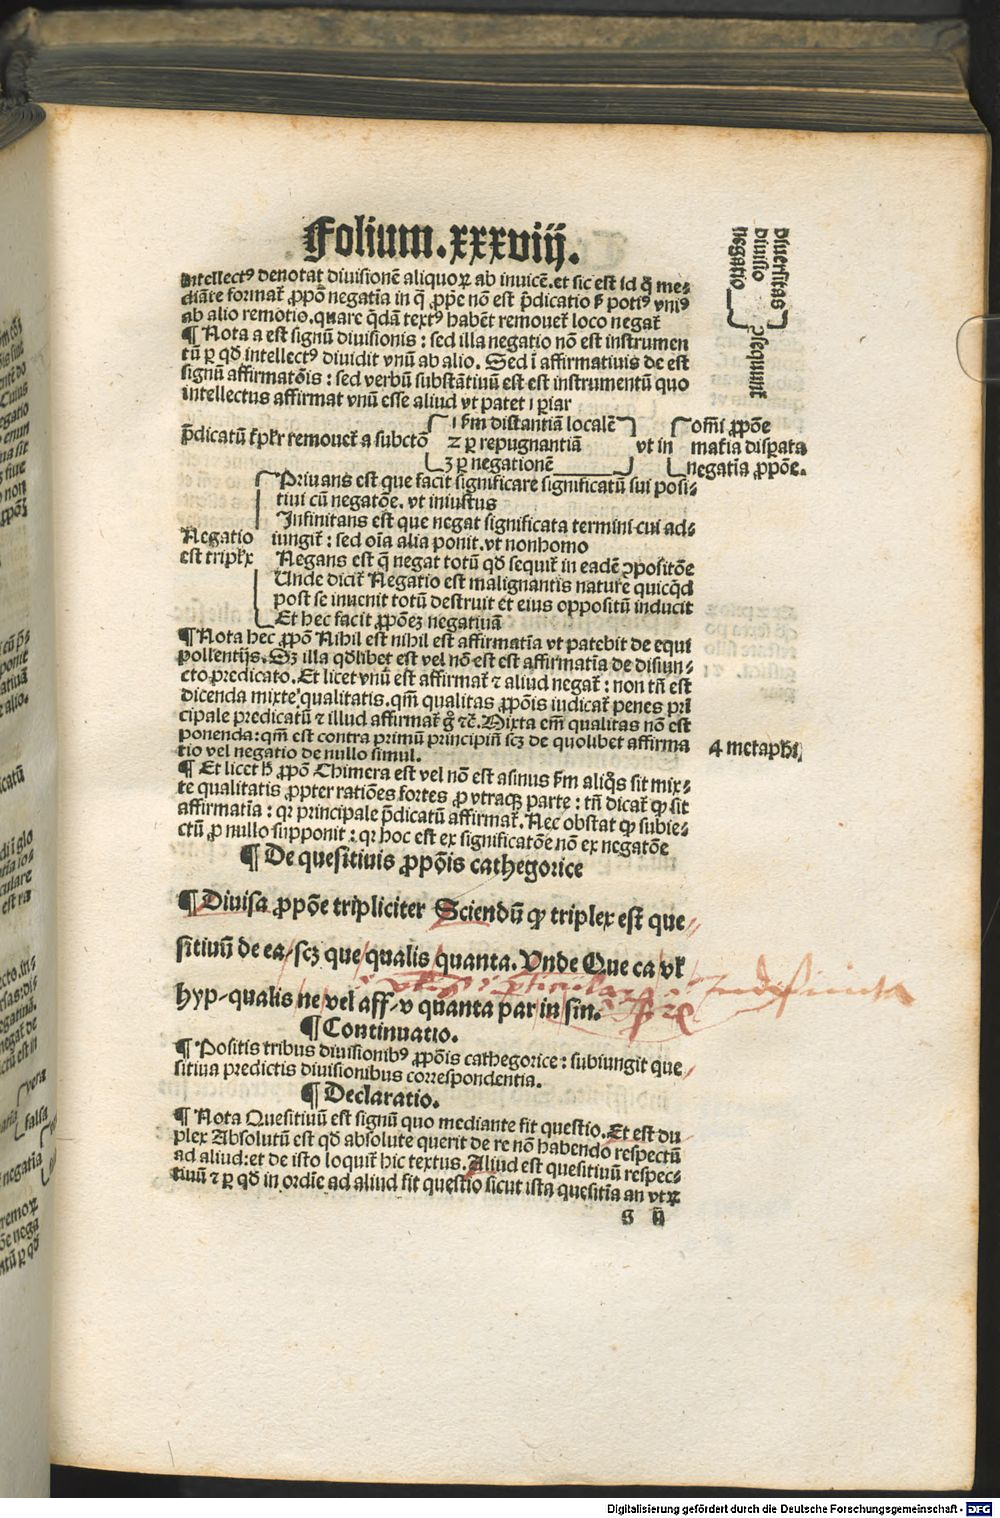 Folium.xxxviij.
intellectꝰ denotat̃ diuisionẽ aliquoꝝ ab inuicẽ.et sic est id q̃ me⸗
diãte format̃ ꝓpõ negatĩa in q̃ ꝓp̃e nõ est p̃dicatio s̃ potiꝰ vniꝰ
ab alio remotio.quare q̃dã textꝰ habẽt remouet̃ loco negat̃
¶ Nota a est signũ diuisionis : sed illa negatio nõ est instrumen
tũ ꝑ qd̃ intellectꝰ diuidit vnũ ab alio. Sed ĩ affirmatiuis de est
signũ affirmatõis : sed verbũ substãtiuũ est est instrumentũ quo
intellectus affirmat vnũ esse aliud vt patet ı ꝑiar
diuersitas
diuisio
negatio
ↄsequunt̃
p̃dicatũ tr̃pl̃r remouet̃ a subctõ
1 s̃m distantiã localẽ
2 ꝑ repugnantiã
3 ꝑ negationẽ
vt in
om̃i ꝓpõe
mat̃ia disꝑata
negatĩa ꝓpõe.
Negatio
est tripl̃x
Priuans est que facit significare significatũ sui posi⸗
tiui cũ negatõe. vt iniustus
Infinitans est que negat significata termini cui ad⸗
iungit̃ : sed oĩa alia ponit.vt nonhomo
Negans est q̃ negat totũ qd̃ sequit̃ in eadẽ ↄpositõe
Unde dicit̃ Negatio est malignantis nature quicq̃d
post se inuenit totũ destruit et eius oppositũ inducit
Et hec facit ꝓpõeꝫ negatiuã
¶ Nota hec ꝓpõ Nihil est nihil est affirmatĩa vt patebit de equi
pollentijs. Sꝫ illa qd̃libet est vel nõ est est affirmatĩa de disiun⸗
cto predicato. Et licet vnũ est affirmat̃ ⁊ aliud negat̃ : non tñ est
dicenda mixte qualitatis. qm̃ qualitas ꝓpõis iudicat̃ penes pri
cipale predicatũ ⁊ illud affirmat̃ g̃ ⁊c̃. Mixta em̃ qualitas nõ est
ponenda: qm̃ est contra primũ principiũ scꝫ de quolibet affirma
tio vel negatio de nullo simul.
4 metaphi,
¶ Et licet h̃ ꝓpõ Chimera est vel nõ est asinus s̃m aliq̃s sit mix⸗
te qualitatis ꝓpter ratiões fortes ꝓ vtraqꝫ parte : tñ dicat̃ ꝙ sit
affirmatĩa : qꝛ principale p̃dicatũ affirmat̃. Nec obstat ꝙ subie⸗
ctũ ꝓ nullo supponit : qꝛ hoc est ex significatõe nõ ex negatõe
¶ De quesitiuis ꝓpõis cathegorice
¶ Diuisa ꝓpõe tripliciter Sciendũ ꝙ triplex est que
sitiuũ de ea/scꝫ que/qualis/quanta. Vnde Que ca vl̃
hyp-qualis ne vel aff-v quanta par in sin.
¶ Continuatio.
¶ Positis tribus diuisionibꝰ ꝓpõis cathegorice : subiungit que
sitiua predictis diuisionibus correspondentia.
¶ Declaratio.
¶ Nota Quesitiuũ est signũ quo mediante fit questio. Et est du
plex Absolutũ est qd̃ absolute querit de re nõ habendo respectũ
ad aliud: et de isto loquit̃ hic textus. Aliud est quesitiuũ respec⸗
tiuũ ⁊ ꝑ qd̃ in ordĩe ad aliud fit questio sicut ista quesitĩa an vtꝝ
Digitalisierung gefördert durch die Deutsche Forschungsgemeinschaft - DFG